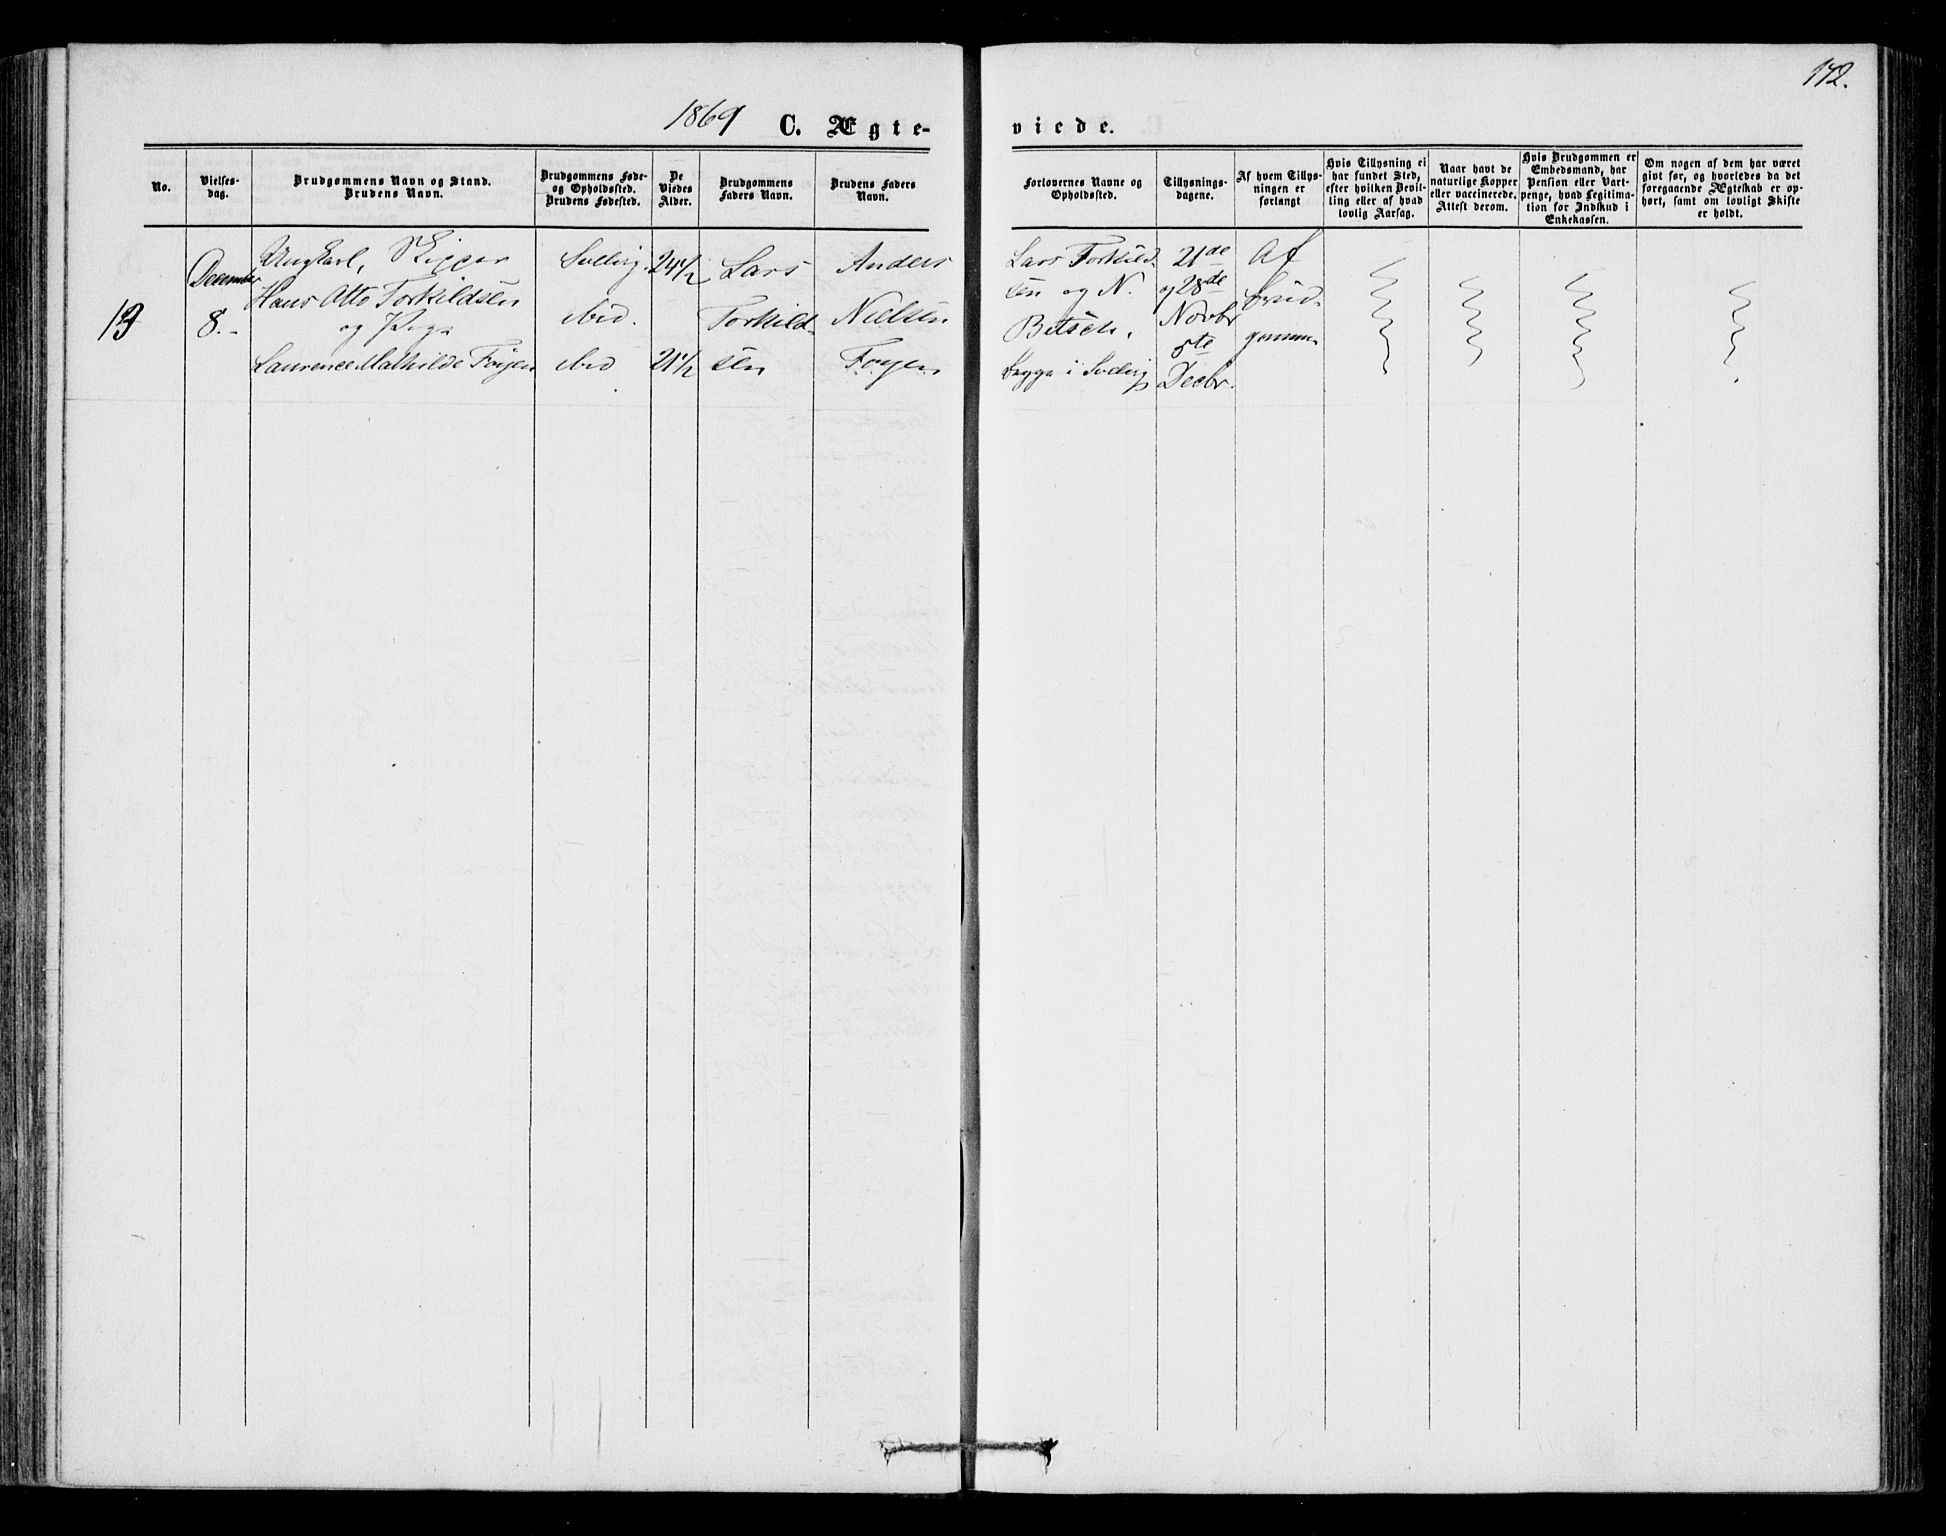 142.
1869 C. Ægte-
viede.
No.
Vielses-
dag.
Brudgommens Navn og Stand.
Brudens Navn.
Brudgommens Føde-
og Opholdssted.
Brudens Fødested.
De
Viedes
Alder.
Brudgommens
Faders Navn.
Brudens Faders
Navn.
Forlovernes Navne og
Opholdssted.
Tillysnings-
dagene.
Af hvem Tillys-
ningen er
forlangt
Hvis Tillysning ei
har fundet Sted,
efter hvilken Bevil-
ling eller af hvad
lovlig Aarsag.
Naar havt de
naturlige Kopper
eller vaccinerede.
Attest derom.
Hvis Brudgommen er
Embedsmand, har
Pension eller Vart-
penge, hvad Legitima-
tion for Indskud i
Enkekassen.
Om nogen af dem har været
givt før, og hvorledes da det
foregaaende Ægteskab er op-
hørt, samt om lovligt Skifte
er holdt.
13
December
8.
Ungkarl, Rigger
Hans Otto Torkildsen
og Pige
Laurence Mathilde Foyen
Solvig
ibid.
ibid
24 1/2
21 1/2
Lars
Torkild-
sen
Anders
Nielsen
Foyen
Lars Torkild-
sen og N.
Brygge i Solvig
21de
og 28de
Novbr
5te
Decbr.
Af
brud-
gommen